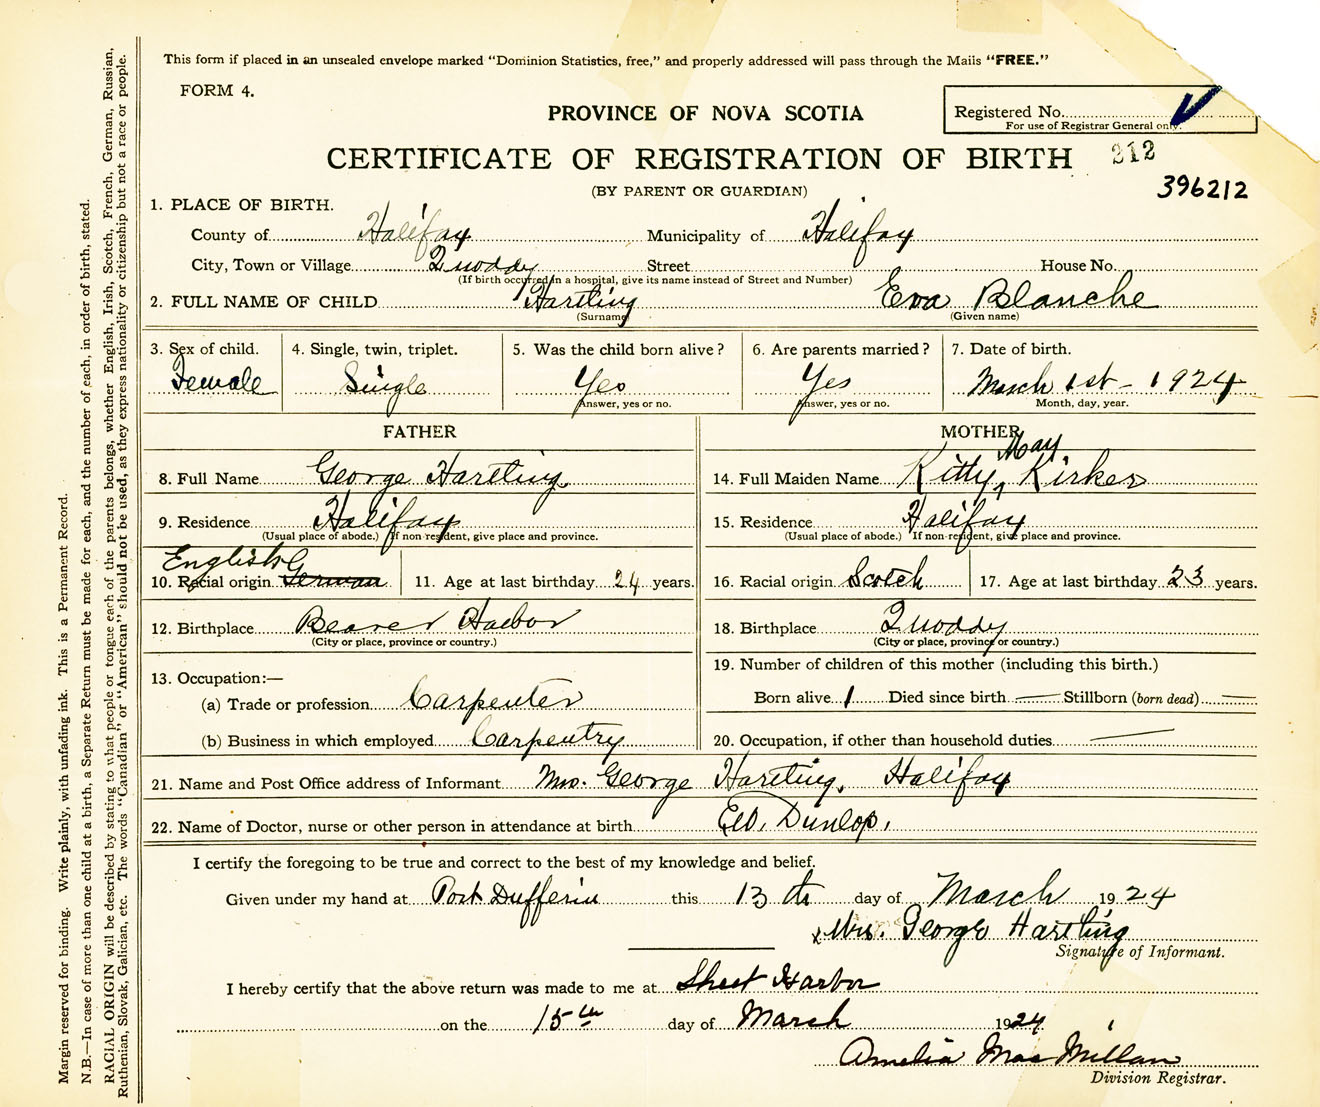 This form if placed in an unsealed envelope marked "Dominion Statistics, free," and properly addressed will pass through the Mails "FREE."
FORM 4.
Registered No.
For use of Registrar General only.
PROVINCE OF NOVA SCOTIA
CERTIFICATE OF REGISTRATION OF BIRTH 212
396212
(BY PARENT OR GUARDIAN)
1. PLACE OF BIRTH.
County of Halifax Municipality of Halifax
City, Town or Village Quoddy Street House No.
(If birth occurred in a hospital, give its name instead of Street and Number)
2. FULL NAME OF CHILD Hartling Eva Blanche
(Surname) (Given name)
3. Sex of child. 4. Single, twin, triplet. 5. Was the child born alive? 6. Are parents married? 7. Date of birth.
Female Single Yes Yes March 1st - 1924
Answer, yes or no. Answer, yes or no. Month, day, year.
FATHER MOTHER
8. Full Name George Hartling 14. Full Maiden Name Kitty May Kirker
9. Residence Halifax 15. Residence Halifax
(Usual place of abode.) If non-resident, give place and province. (Usual place of abode.) If non-resident, give place and province.
English
10. Racial origin German 11. Age at last birthday 24 years. 16. Racial origin Scotch 17. Age at last birthday 23 years.
12. Birthplace Beaver Harbor 18. Birthplace Quoddy
(City or place, province or country.) (City or place, province or country.)
13. Occupation:— 19. Number of children of this mother (including this birth.)
(a) Trade or profession Carpenter Born alive 1 Died since birth — Stillborn (born dead) —
(b) Business in which employed Carpentry 20. Occupation, if other than household duties —
21. Name and Post Office address of Informant Mrs. George Hartling, Halifax
22. Name of Doctor, nurse or other person in attendance at birth Dunlop.
I certify the foregoing to be true and correct to the best of my knowledge and belief.
Given under my hand at Port Dufferin this 13th day of March 1924
x Mrs. George Hartling
Signature of Informant.
I hereby certify that the above return was made to me at Sheet Harbor
on the 15th day of March 1924
Amelia MacMillan
Division Registrar.
Margin reserved for binding. Write plainly, with unfading ink. This is a Permanent Record.
N.B.—In case of more than one child at a birth, a Separate Return must be made for each, and the number of each, in order of birth, stated.
RACIAL ORIGIN will be described by stating to what people or tongue each of the parents belongs, whether English, Irish, Scotch, French, German, Russian,
Ruthenian, Slovak, Galician, etc. The words "Canadian" or "American" should not be used, as they express nationality or citizenship but not a race or people.